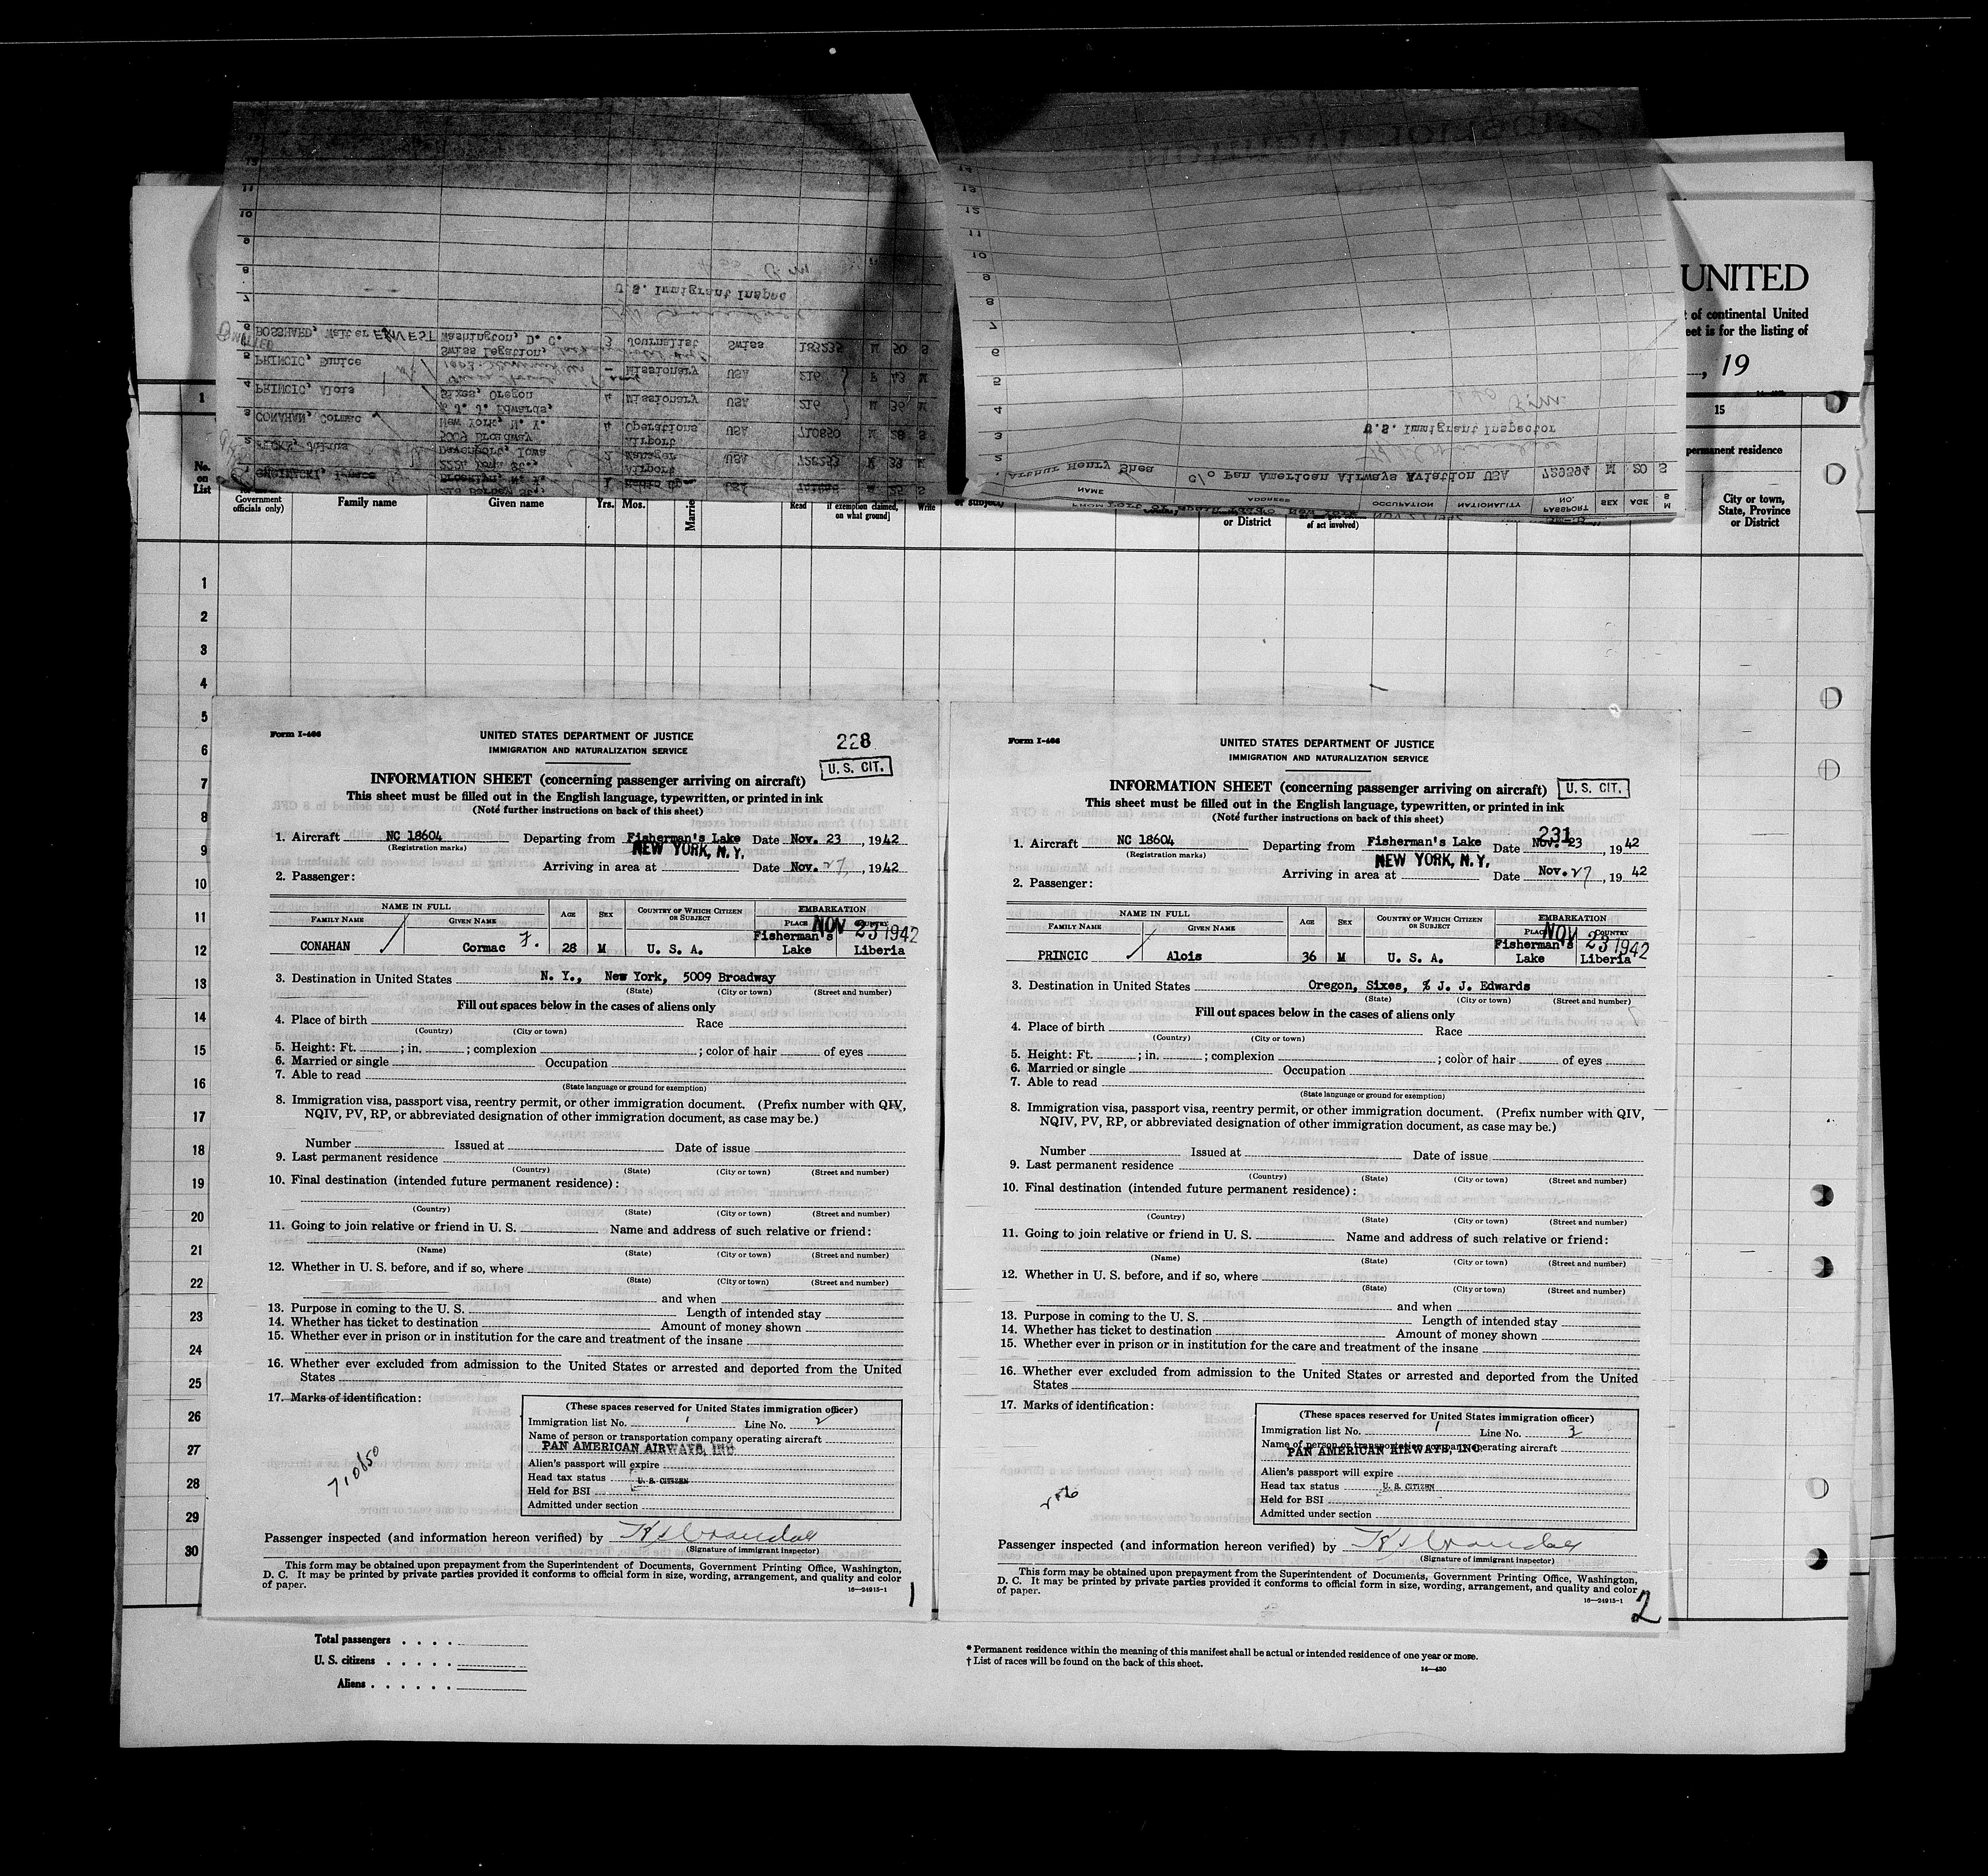 UNITED
of continental United
eet is for the listing of
, 19
1
15
permanent residence
No.
on
List
Government
officials only)
Family name
Given name
Yrs.
Mos.
Married
Read
if exemption claimed,
on what ground]
Write
or subject)
or District
of act involved)
City or town,
State, Province
or District
11
10
9
8
U.S. Immigrant Inspec
7
6 BOSSHARD, Walter Washington, D. C. 3 Journalist Swiss 183235 M 50 S
Swiss Legation,
5 PRINCIC, Eunice Missionary USA 216 F 43 M
4 PRINCIC, Alois Sixes, Oregon 4 Missionary USA 216 M 36 M
% J. J. Edwards,
3 CONAHAN, Cormac New York, N. Y. 4 Operations USA 710850 M 28 S
5009 Broadway Airport
2 Davenport, Iowa Manager USA M 39 M
Airport
Brooklyn, N. Y. 1 USA
14
13
12
11
10
9
8
7
6
5
4
U.S. Immigrant Inspector
3
2
Arthur Henry Shea c/o Pan American Airways Aviation USA 729594 M 20 S
NAME ADDRESS OCCUPATION NATIONALITY PASSPORT NO. SEX AGE S M
1
2
3
4
5
6
7
8
9
10
11
12
13
14
15
16
17
18
19
20
21
22
23
24
25
26
27
28
29
30
Form I-466
UNITED STATES DEPARTMENT OF JUSTICE
IMMIGRATION AND NATURALIZATION SERVICE
228
U. S. CIT.
INFORMATION SHEET (concerning passenger arriving on aircraft)
This sheet must be filled out in the English language, typewritten, or printed in ink
(Note further instructions on back of this sheet)
1. Aircraft NC 18604 Departing from Fisherman's Lake Date Nov. 23, 1942
(Registration marks)
NEW YORK, N.Y.
Arriving in area at Date Nov. 27, 1942
2. Passenger:
NAME IN FULL
FAMILY NAME GIVEN NAME AGE SEX COUNTRY OF WHICH CITIZEN OR SUBJECT EMBARKATION
PLACE COUNTRY
NOV 23 1942
CONAHAN Cormac F. 28 M U. S. A. Fisherman's Lake Liberia
3. Destination in United States N. Y., New York, 5009 Broadway
(State) (City or town) (Street and number)
Fill out spaces below in the cases of aliens only
4. Place of birth Race
(Country) (City or town)
5. Height: Ft. ; in. ; complexion ; color of hair of eyes
6. Married or single Occupation
7. Able to read
(State language or ground for exemption)
8. Immigration visa, passport visa, reentry permit, or other immigration document. (Prefix number with QIV,
NQIV, PV, RP, or abbreviated designation of other immigration document, as case may be.)
Number Issued at Date of issue
9. Last permanent residence
(Country) (State) (City or town) (Street and number)
10. Final destination (intended future permanent residence):
(Country) (State) (City or town) (Street and number)
11. Going to join relative or friend in U. S. Name and address of such relative or friend:
(Name) (State) (City or town) (Street and number)
12. Whether in U. S. before, and if so, where
(State) (City or town) (Street and number)
and when
13. Purpose in coming to the U. S. Length of intended stay
14. Whether has ticket to destination Amount of money shown
15. Whether ever in prison or in institution for the care and treatment of the insane
16. Whether ever excluded from admission to the United States or arrested and deported from the United
States
17. Marks of identification:
710850
(These spaces reserved for United States immigration officer)
Immigration list No. 1 Line No. 2
Name of person or transportation company operating aircraft
PAN AMERICAN AIRWAYS, INC
Alien's passport will expire
Head tax status U. S. CITIZEN
Held for BSI
Admitted under section
Passenger inspected (and information hereon verified) by
(Signature of immigrant inspector)
This form may be obtained upon prepayment from the Superintendent of Documents, Government Printing Office, Washington,
D. C. It may be printed by private parties provided it conforms to official form in size, wording, arrangement, and quality and color
of paper.
16—24915-1
1
Form I-466
UNITED STATES DEPARTMENT OF JUSTICE
IMMIGRATION AND NATURALIZATION SERVICE
INFORMATION SHEET (concerning passenger arriving on aircraft)
U. S. CIT.
This sheet must be filled out in the English language, typewritten, or printed in ink
(Note further instructions on back of this sheet)
231
1. Aircraft NC 18604 Departing from Fisherman's Lake Date Nov. 23, 1942
(Registration marks)
NEW YORK, N.Y.
Arriving in area at Date Nov. 27, 1942
2. Passenger:
NAME IN FULL
FAMILY NAME GIVEN NAME AGE SEX COUNTRY OF WHICH CITIZEN OR SUBJECT EMBARKATION
PLACE COUNTRY
NOV 23 1942
PRINCIC Alois 36 M U. S. A. Fisherman's Lake Liberia
3. Destination in United States Oregon, Sixes, % J. J. Edwards
(State) (City or town) (Street and number)
Fill out spaces below in the cases of aliens only
4. Place of birth Race
(Country) (City or town)
5. Height: Ft. ; in. ; complexion ; color of hair of eyes
6. Married or single Occupation
7. Able to read
(State language or ground for exemption)
8. Immigration visa, passport visa, reentry permit, or other immigration document. (Prefix number with QIV,
NQIV, PV, RP, or abbreviated designation of other immigration document, as case may be.)
Number Issued at Date of issue
9. Last permanent residence
(Country) (State) (City or town) (Street and number)
10. Final destination (intended future permanent residence):
(Country) (State) (City or town) (Street and number)
11. Going to join relative or friend in U. S. Name and address of such relative or friend:
(Name) (State) (City or town) (Street and number)
12. Whether in U. S. before, and if so, where
(State) (City or town) (Street and number)
and when
13. Purpose in coming to the U. S. Length of intended stay
14. Whether has ticket to destination Amount of money shown
15. Whether ever in prison or in institution for the care and treatment of the insane
16. Whether ever excluded from admission to the United States or arrested and deported from the United
States
17. Marks of identification:
216
(These spaces reserved for United States immigration officer)
Immigration list No. 1 Line No. 3
Name of person or transportation company operating aircraft
PAN AMERICAN AIRWAYS, INC
Alien's passport will expire
Head tax status U. S. CITIZEN
Held for BSI
Admitted under section
Passenger inspected (and information hereon verified) by
(Signature of immigrant inspector)
This form may be obtained upon prepayment from the Superintendent of Documents, Government Printing Office, Washington,
D. C. It may be printed by private parties provided it conforms to official form in size, wording, arrangement, and quality and color
of paper.
16—24915-1
2
Total passengers
U. S. citizens
Aliens
* Permanent residence within the meaning of this manifest shall be actual or intended residence of one year or more.
† List of races will be found on the back of this sheet.
14—430